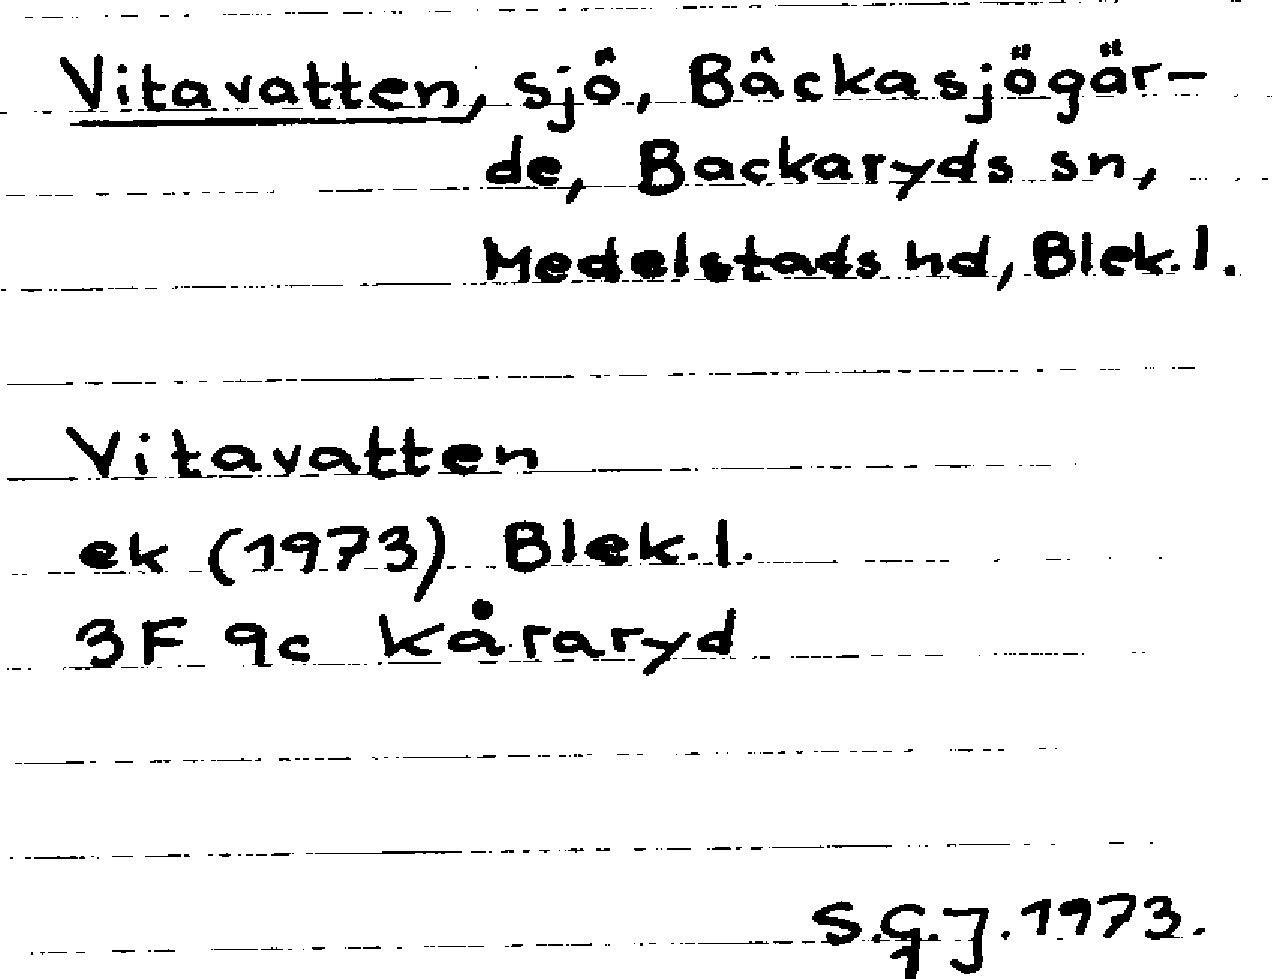 Vitavatten, sjö, Bäckasjögär-
de, Backaryds sn,
Medelstads hd, Blek.l.
Vitavatten
ek (1973) Blek.l.
3F 9c Kåraryd
S.G.J. 1973.